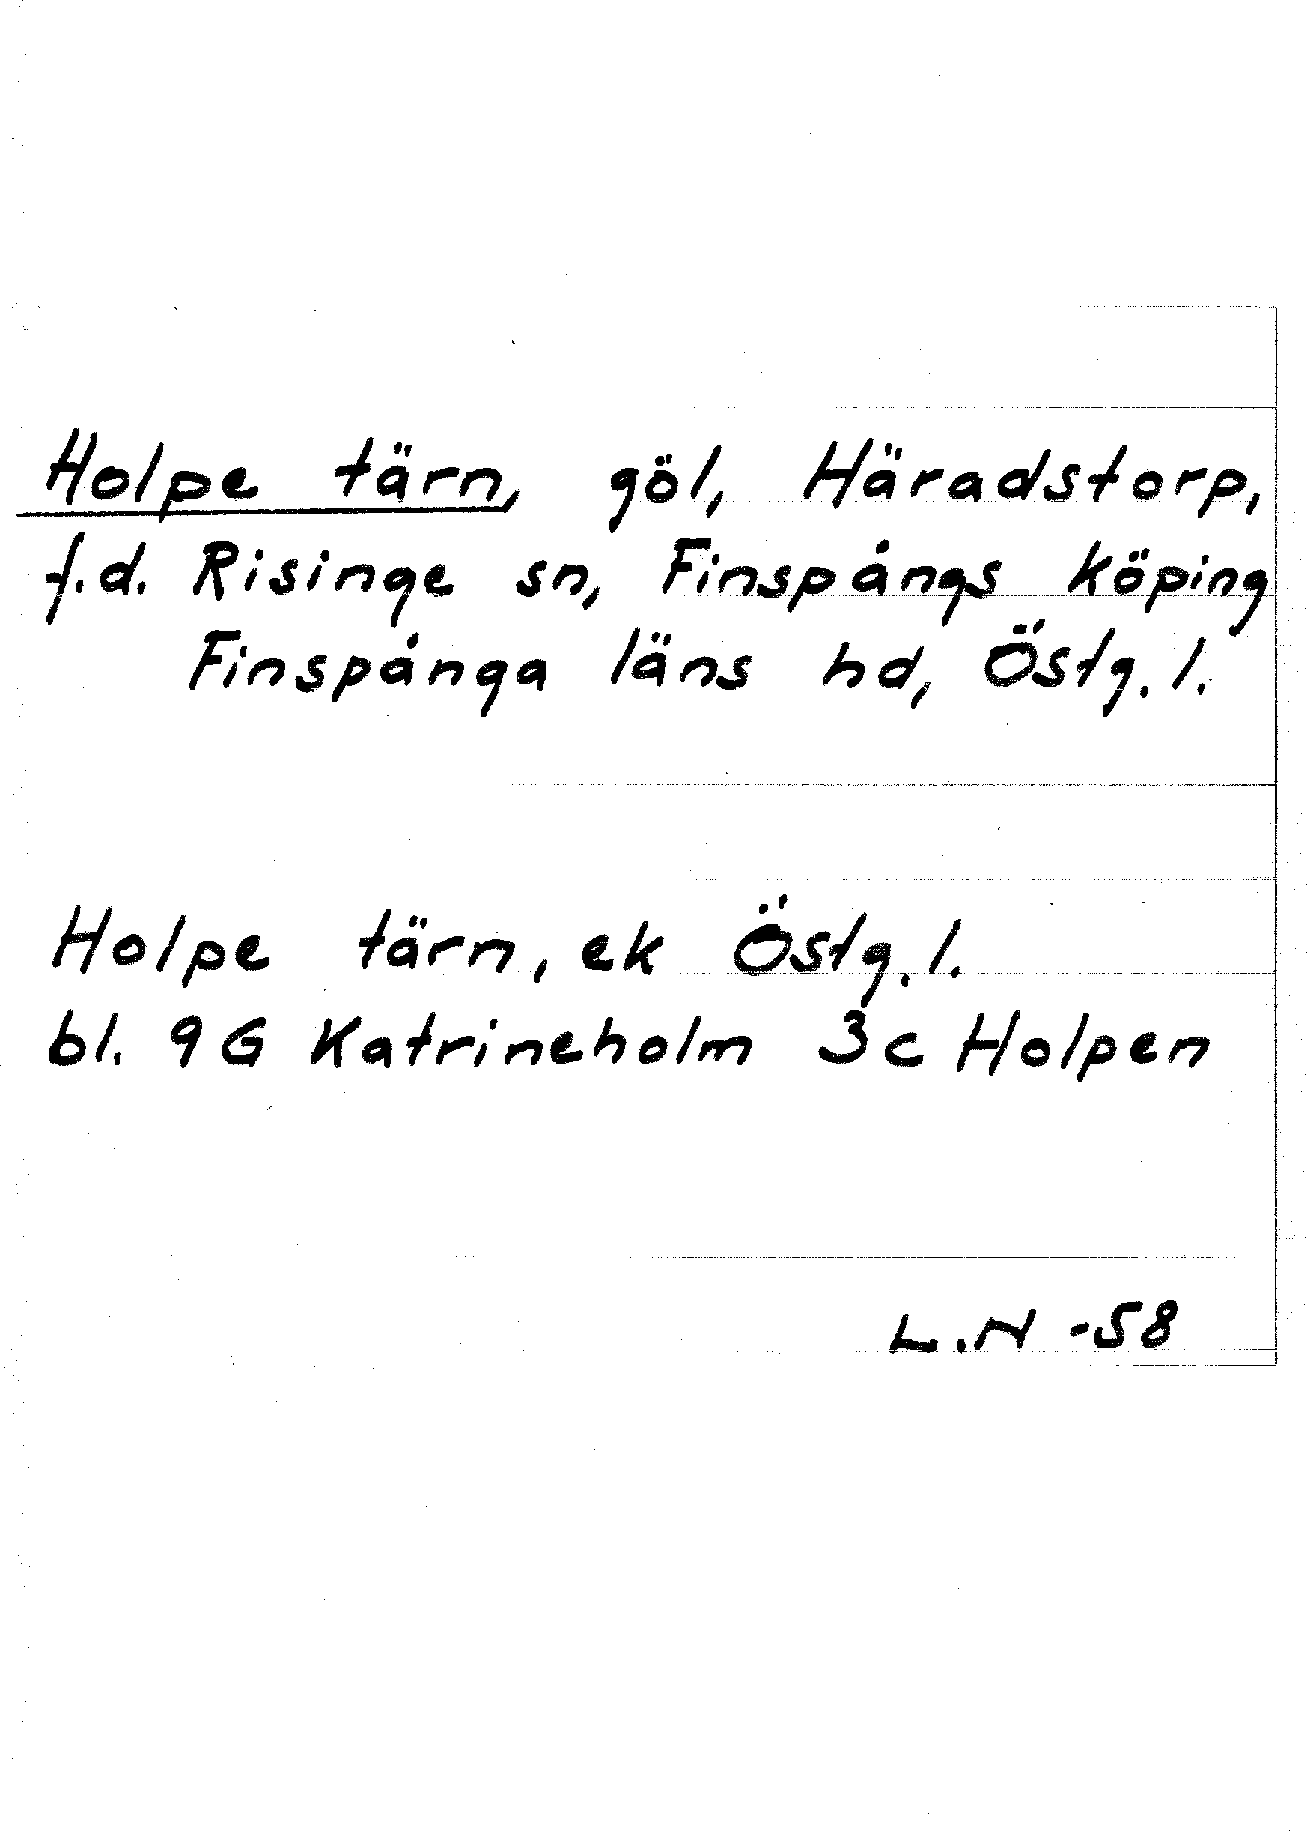 Holpe tärn, göl, Häradstorp,
f.d. Risinge sn, Finspångs köping
Finspånga läns hd, Östg. l.
Holpe tärn, ek Östg. l.
bl. 9G Katrineholm 3c Holpen
L.N -58